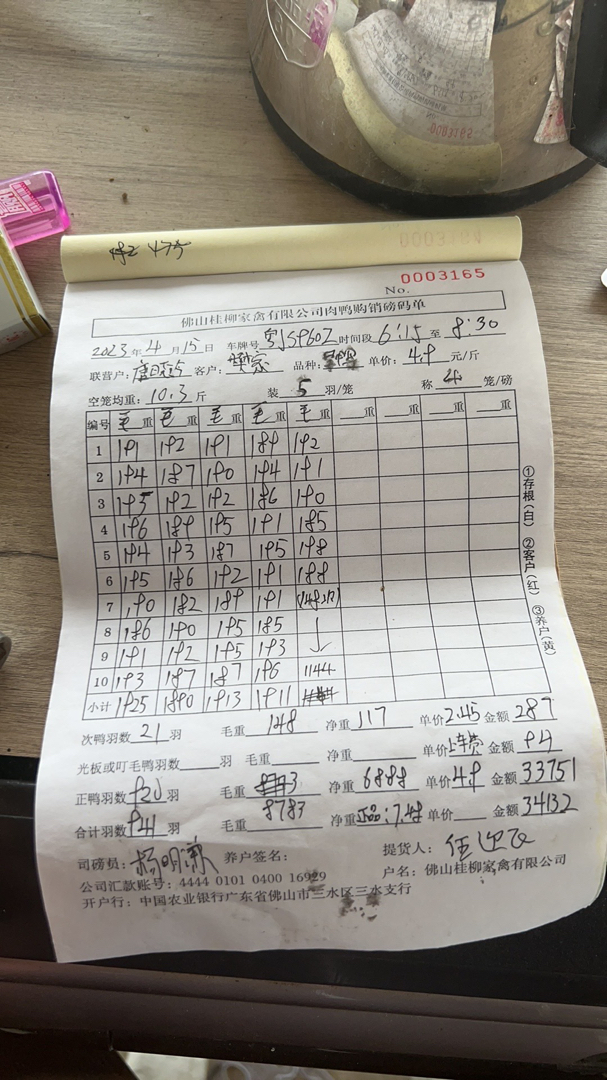 0003165
No.
佛山桂柳家禽有限公司肉鸭购销磅码单
2023年4月15日 车牌号 粤JS960Z 时间段 6:15 至 8:30
联营户: 客户: 品种: 单价: 4.9 元/斤
空笼均重: 10.3 斤 装 5 羽/笼 称 4 笼/磅
编号 毛重 毛重 毛重 毛重 毛重 重 重 重 重
1 191 192 191 189 192
2 194 187 190 194 191
3 195 192 192 186 190
4 196 189 195 191 185
5 194 193 187 195 198
6 195 186 192 191 188
7 190 182 189 191 (148次)
8 186 190 195 185
9 191 192 195 193
10 193 187 187 196 1144
小计 1925 1890 1913 1911
①存根(白) ②客户(红) ③养户(黄)
次鸭羽数 21 羽 毛重 148 净重 117 单价 2.45 金额 287
光板或叮毛鸭羽数 羽 毛重 净重 单价 上车费 金额 94
正鸭羽数 920 羽 毛重 净重 6888 单价 4.9 金额 33751
合计羽数 941 羽 毛重 8783 净重 正品:7.48 单价 金额 34132
司磅员: 养户签名: 提货人:
公司汇款账号: 4444 0101 0400 16929 户名: 佛山桂柳家禽有限公司
开户行: 中国农业银行广东省佛山市三水区三水支行